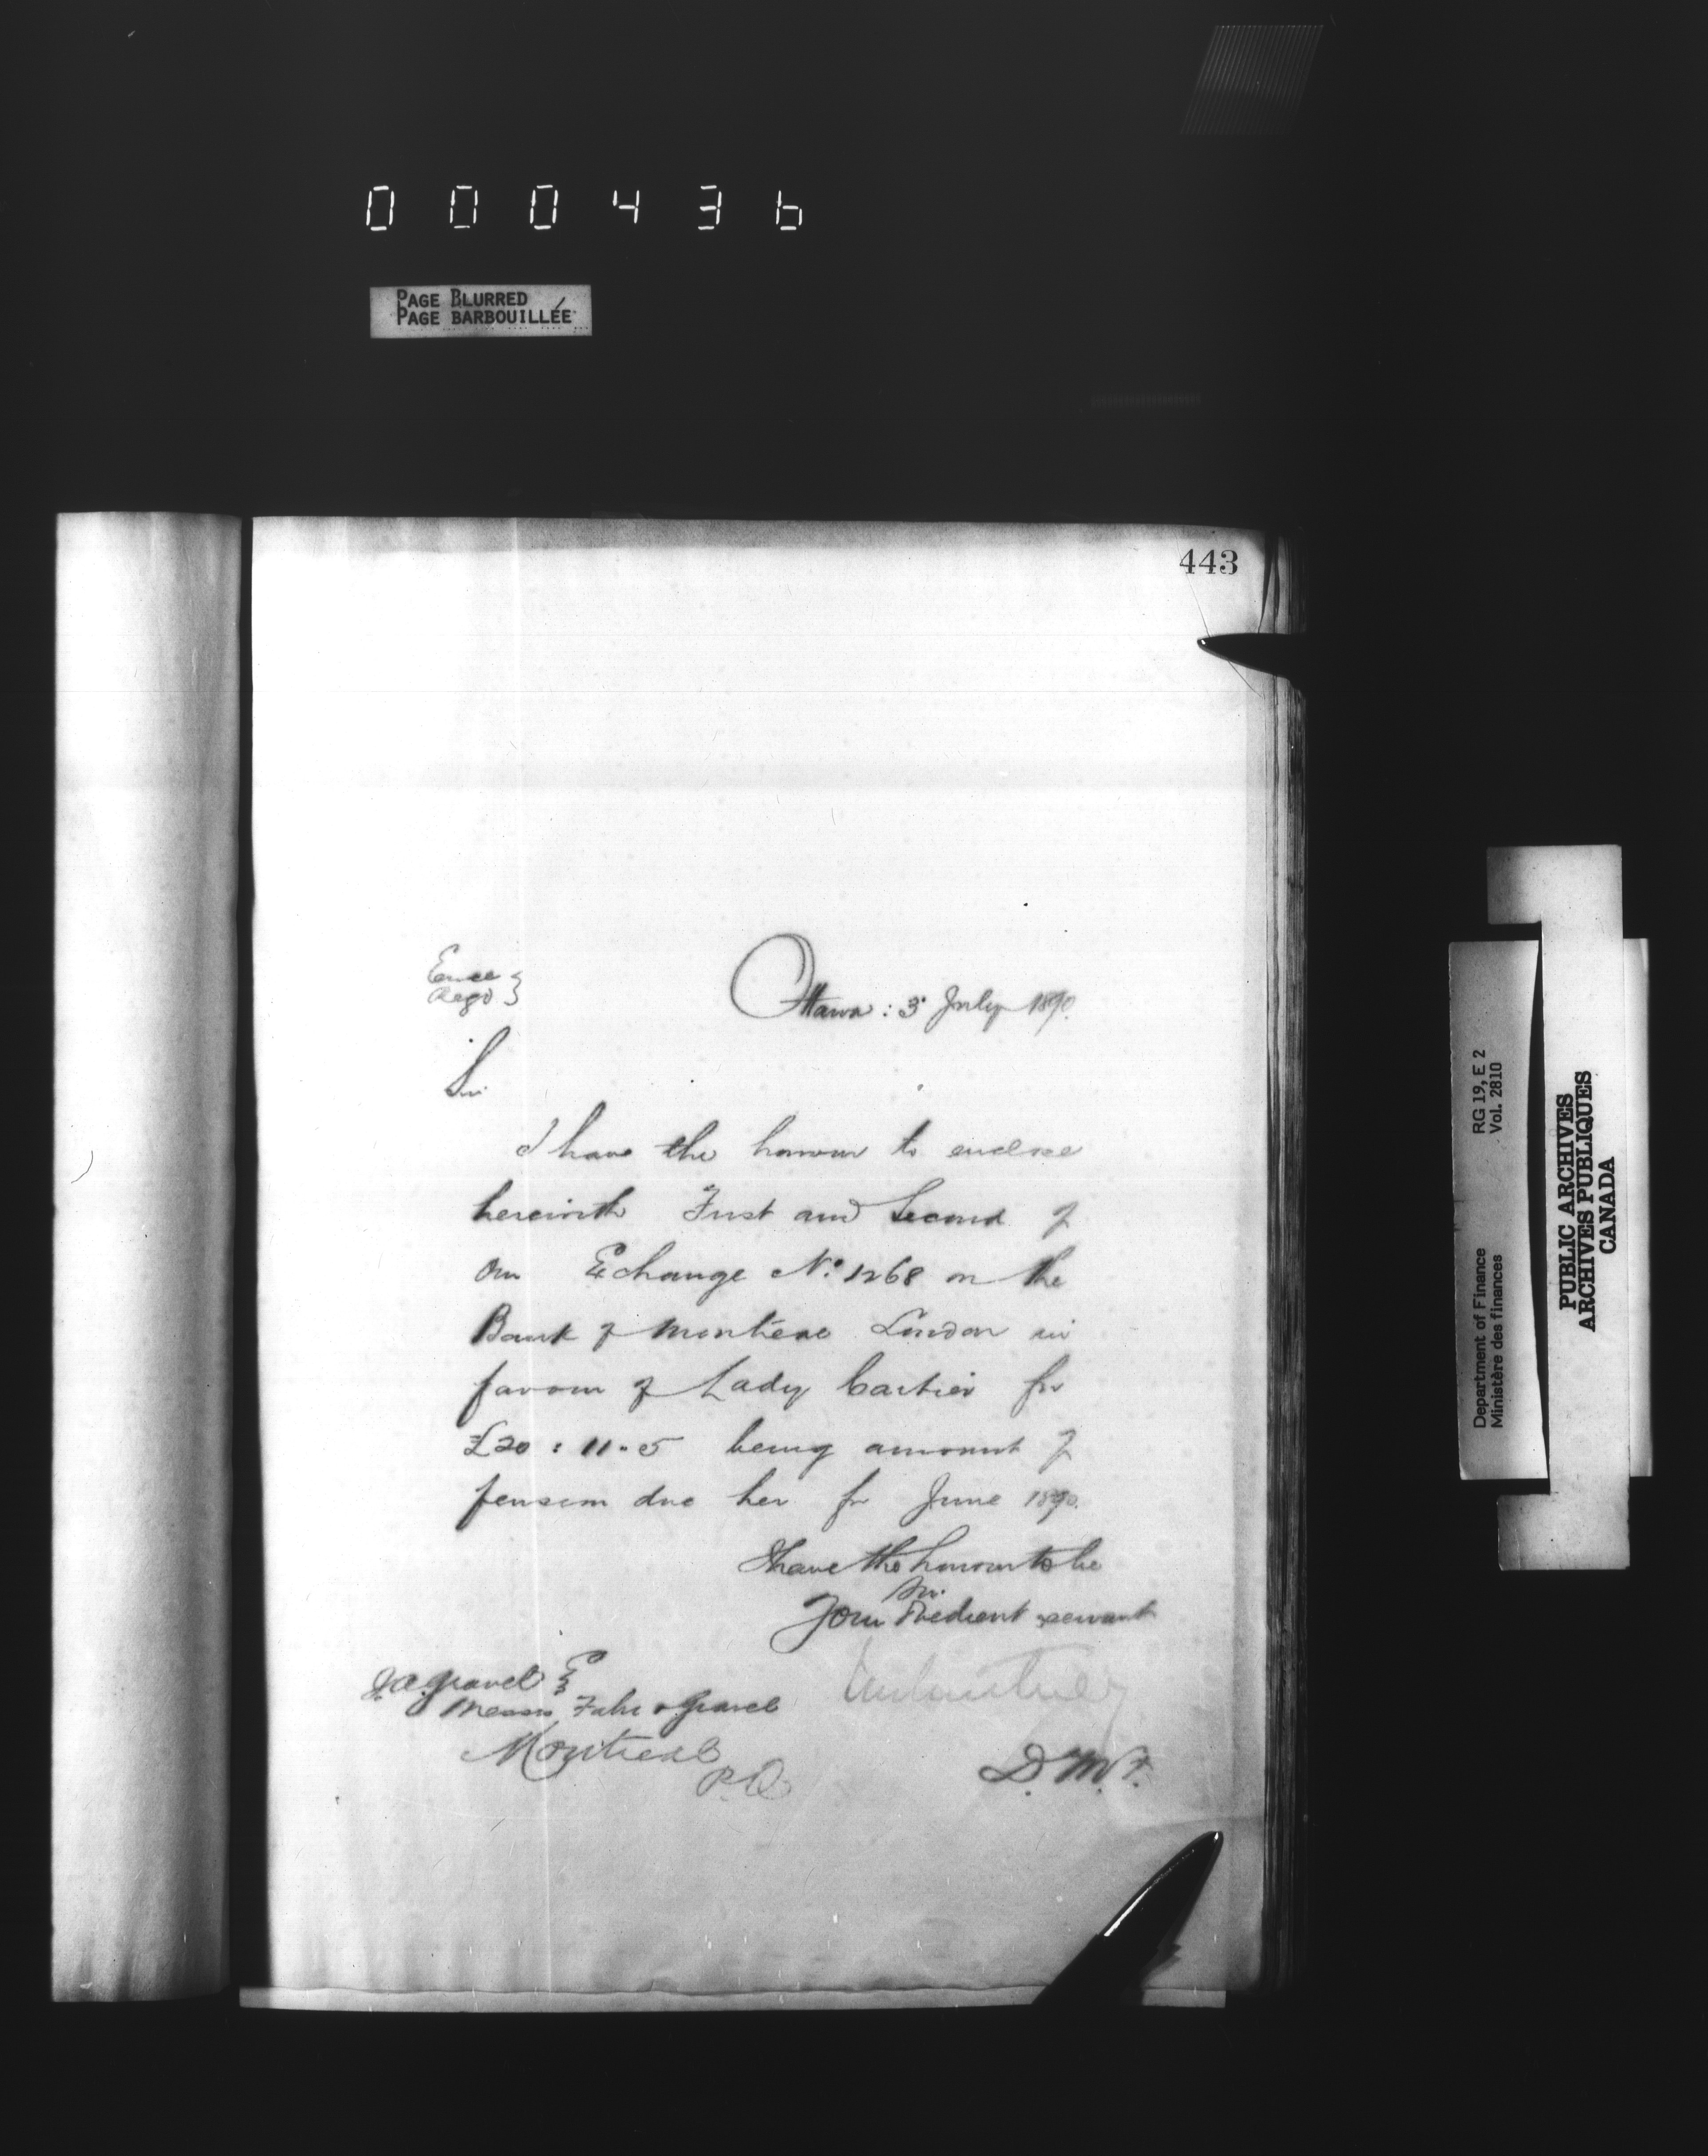 000436
PAGE BLURRED
PAGE BARBOUILLÉE
443
Regd }
Ottawa: 3 July 1890.
Sir
I have the honour to enclose
herewith First and Second of
our Exchange No. 1268 on the
Bank of Montreal London in
favour of Lady Cartier for
£20 : 11 - 5 being amount of
pension due her for June 1890.
I have the honour to be
Sir.
Your Obedient servant
J.A. Gravel E
Messrs Fabre & Gravel
Montreal
P.Q.
D.M.F.
Department of Finance RG 19, E 2
Ministère des finances Vol. 2810
PUBLIC ARCHIVES
ARCHIVES PUBLIQUES
CANADA